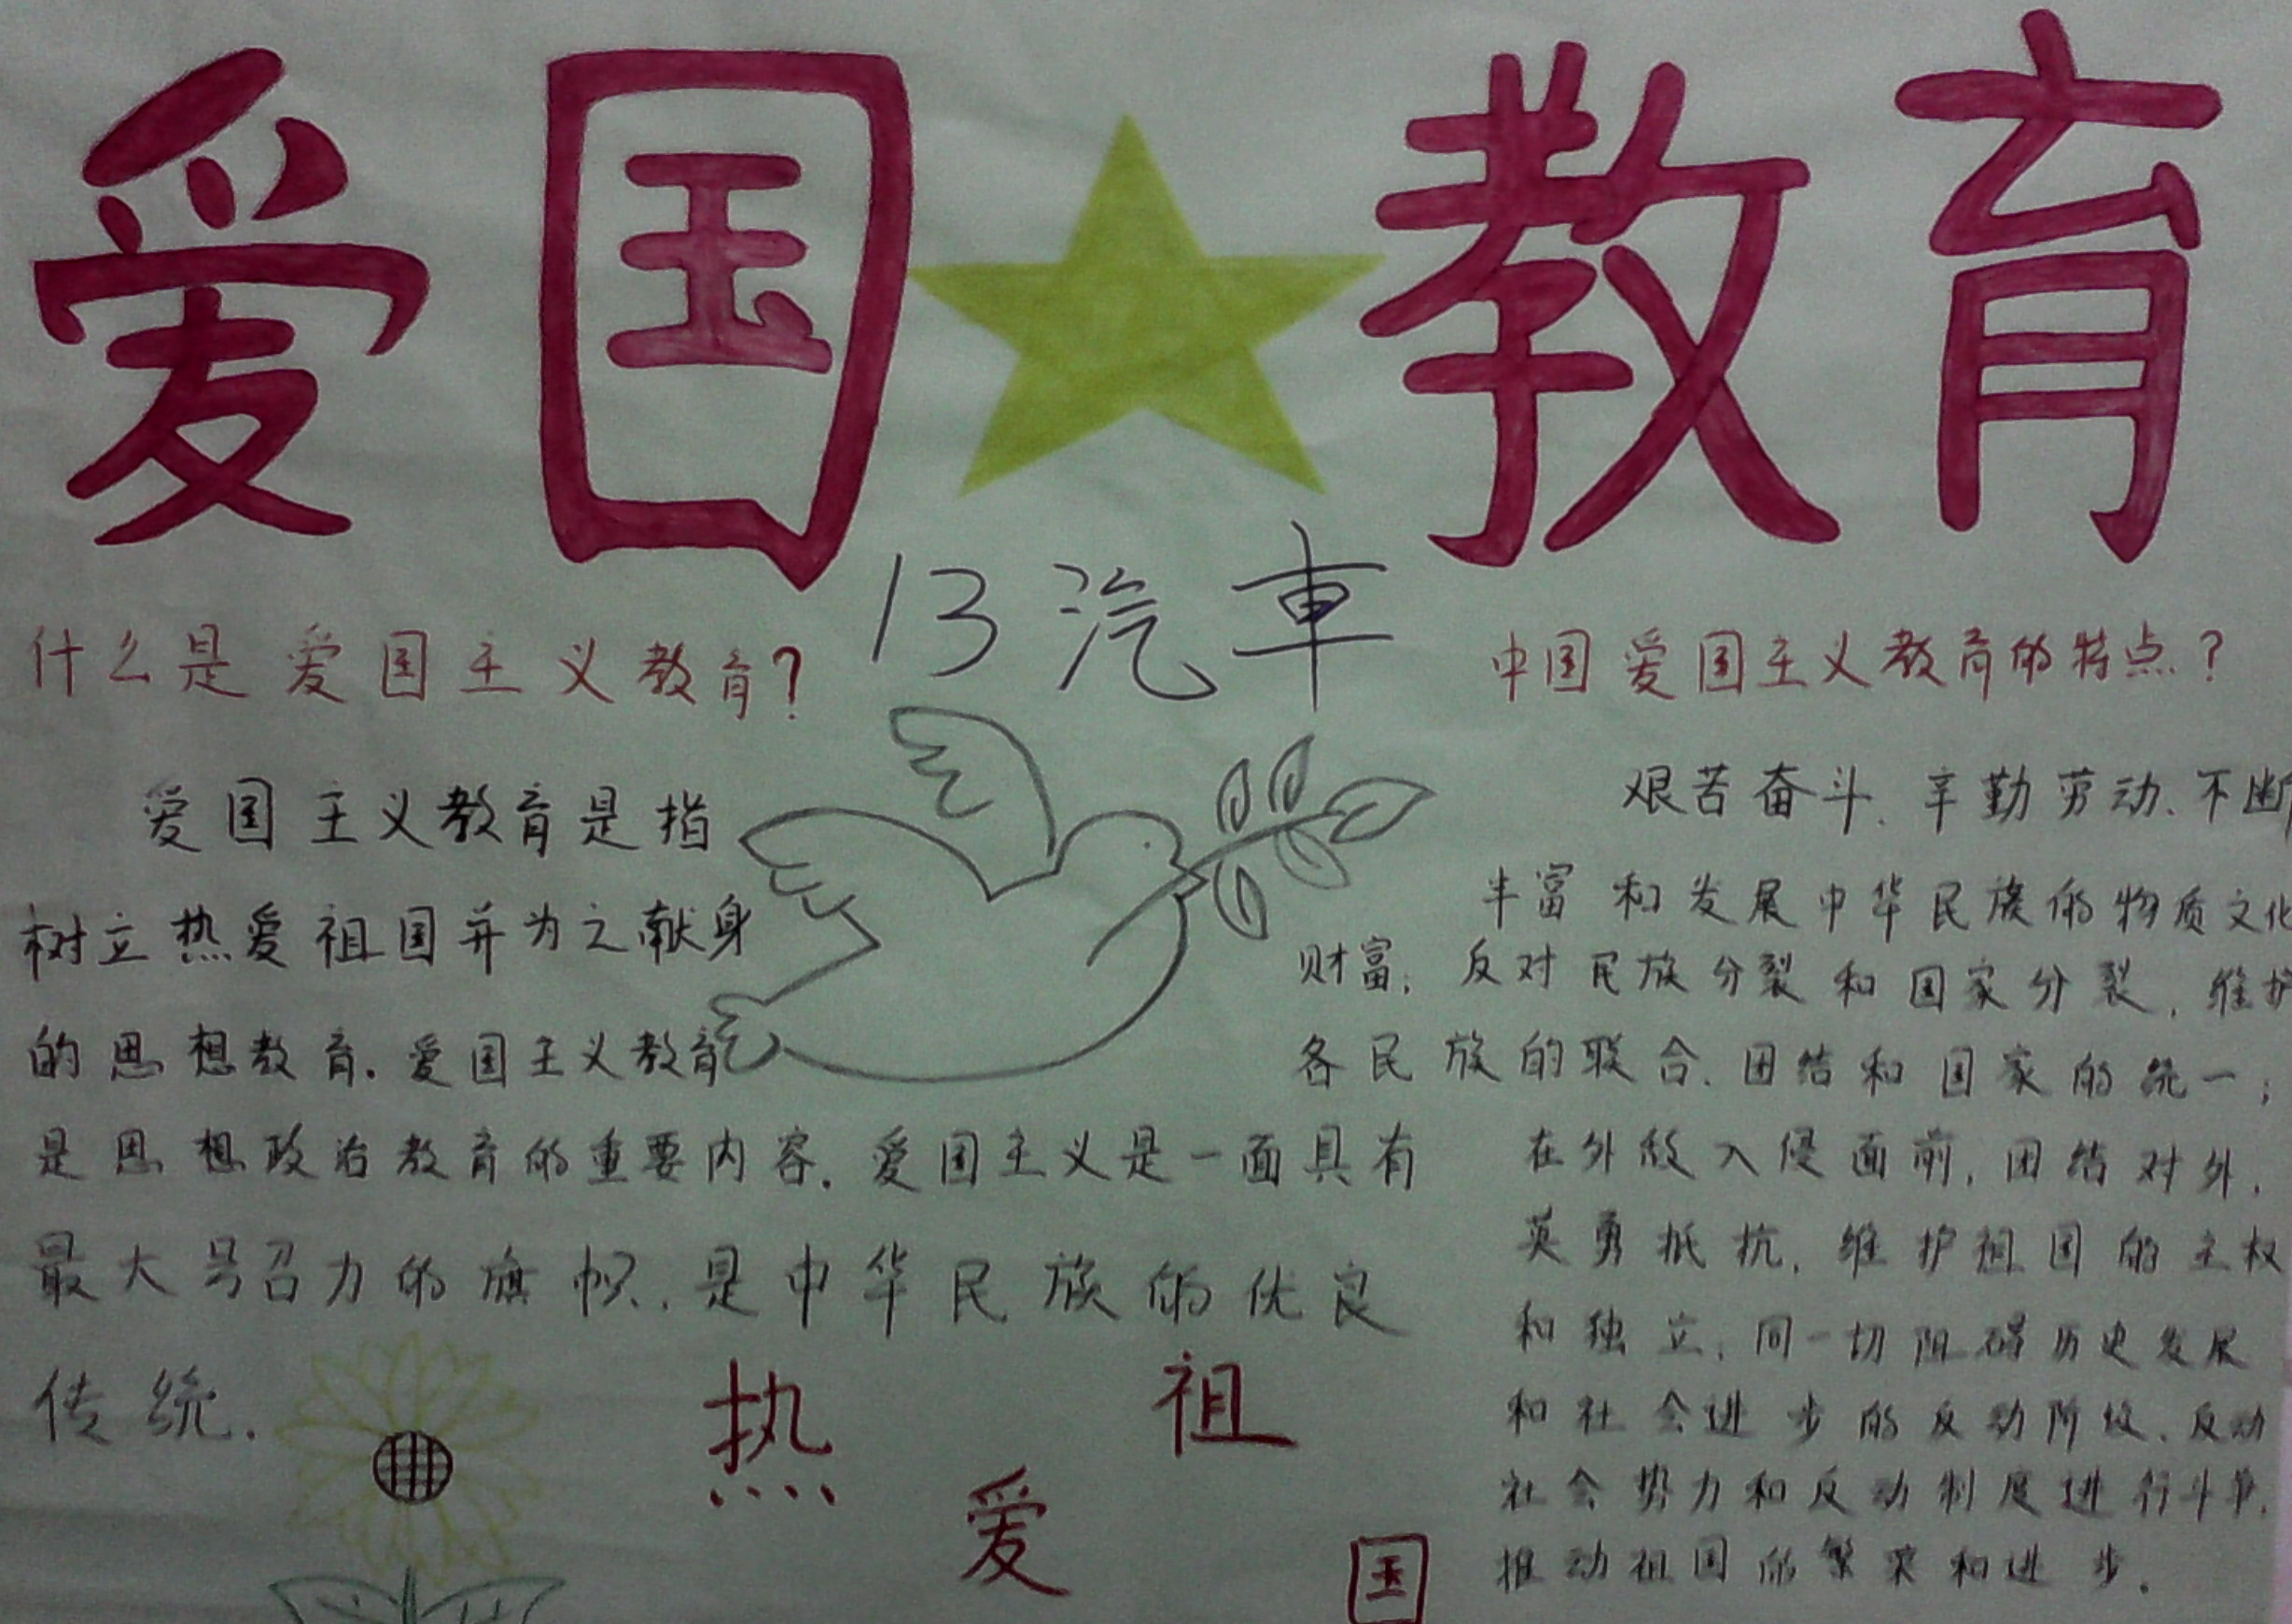 爱国教育
13汽車
什么是爱国主义教育?
爱国主义教育是指
树立热爱祖国并为之献身
的思想教育.爱国主义教育
是思想政治教育的重要内容.爱国主义是一面具有
最大号召力的旗帜.是中华民族的优良
传统.
中国爱国主义教育的特点?
艰苦奋斗.辛勤劳动.不断
丰富和发展中华民族的物质文化
财富;反对民族分裂和国家分裂,维护
各民族的联合.团结和国家的统一;
在外敌入侵面前,团结对外,
英勇抵抗,维护祖国的主权
和独立,同一切阻碍历史发展
和社会进步的反动阶级.反动
社会势力和反动制度进行斗争,
推动祖国的繁荣和进步.
热爱祖国